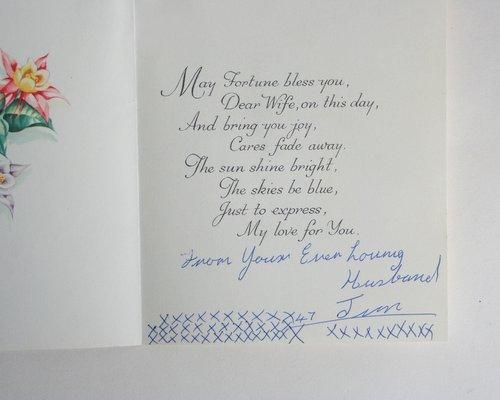 May Fortune bless you,
Dear Wife, on this day,
And bring you joy,
Cares fade away.
The sun shine bright,
The skies be blue,
Just to express,
My love for You.
From Your Ever Loving
Husband
Jim
XXXXXXXXXX47
XXXXXXXXXXXXXX XXXXXXXXXX
XXXXXXXXXXXXXX